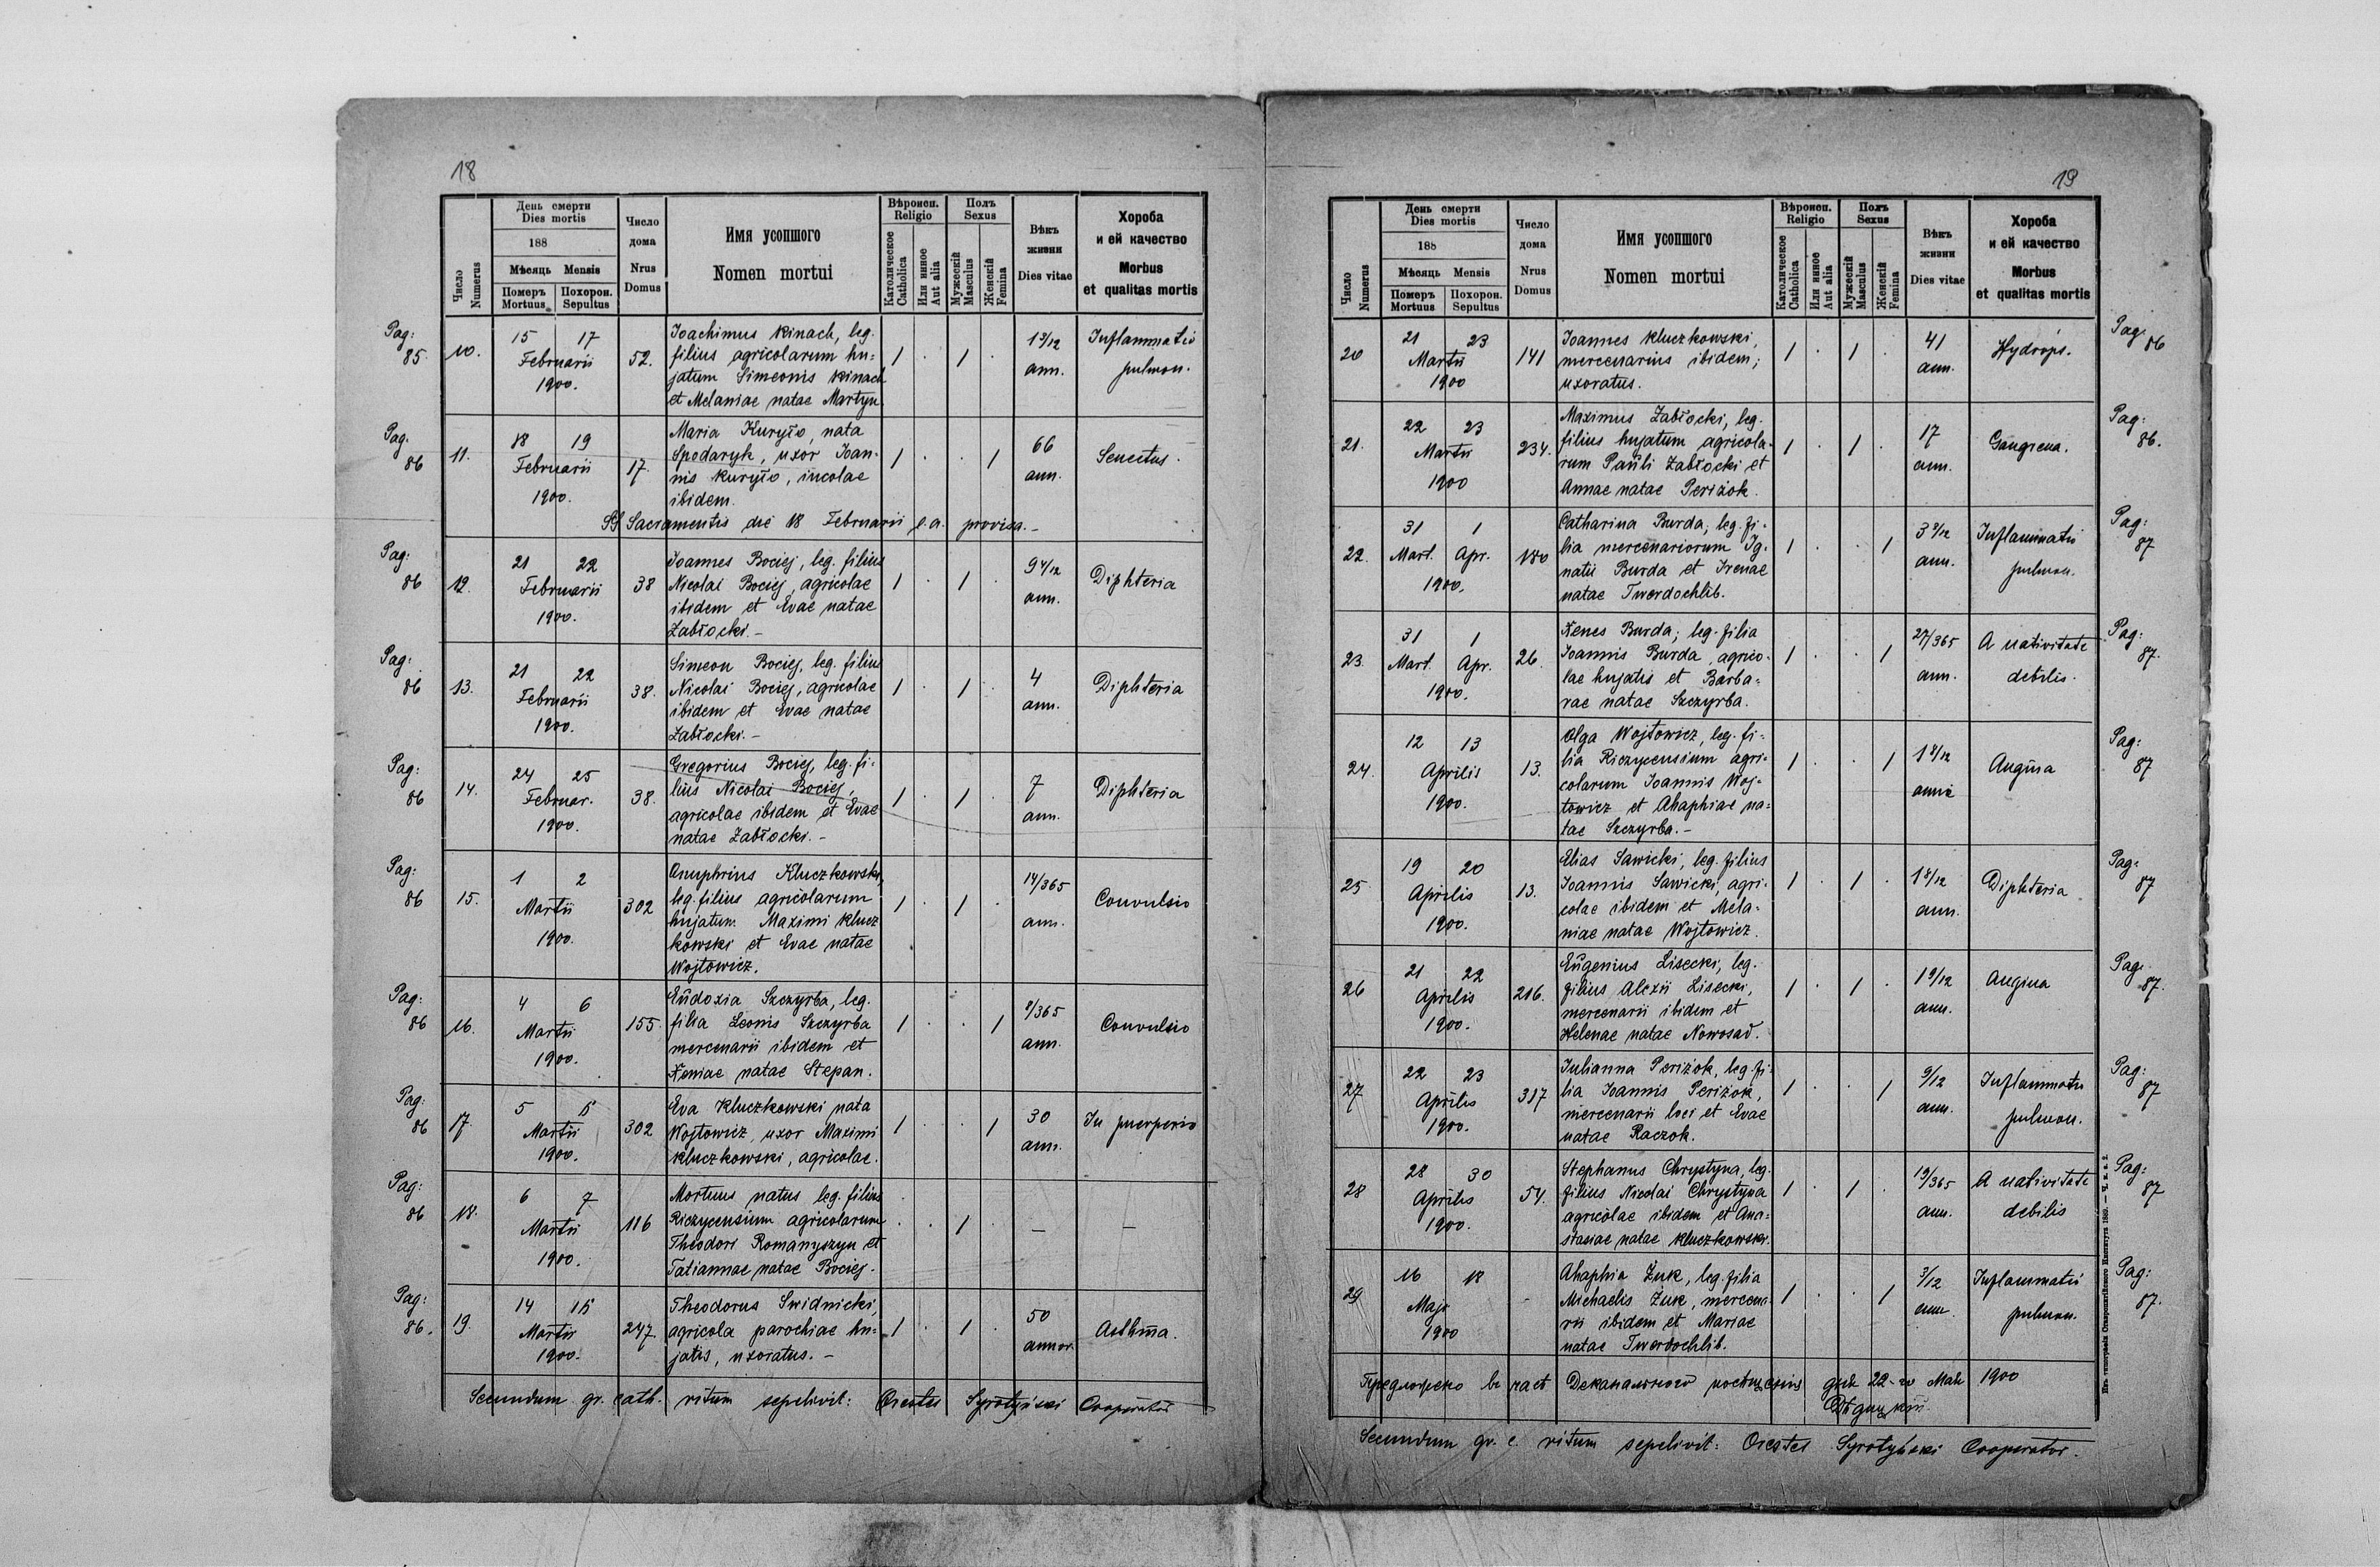 18
День смерти
Dies mortis
188
Мѣсяць Mensis
Померъ
Mortuus
Похорон.
Sepultus
Число
Numerus
Число
дома
Nrus
Domus
Имя усопшого
Nomen mortui
Вѣроисп.
Religio
Католическое
Catholica
Или иное
Aut alia
Полъ
Sexus
Мужескій
Masculus
Женскій
Femina
Вѣкъ
жизни
Dies vitae
Хороба
и ей качество
Morbus
et qualitas mortis
Pag: 85. 10. 15 17 Februarii 1900. 52.
Joachimus Kinach, leg.
filius agricolarum hu=
jatum Simeonis Kinach
et Melaniae natae Martyn.
1 . 1 . 1 3/12 ann.
Inflammatio
pulmon.
Pag. 86 11. 18 19 Februarii 1900. 17.
Maria Kuryło, nata
Spodaryk, uxor Joan-
nis Kuryło, incolae
ibidem.
1 . . 1 66 ann. Senectus.
SS Sacramentis die 18 Februarii e.a. provisa.-
Pag: 86 12. 21 22 Februarii 1900. 38
Joannes Bociej, leg. filius
Nicolai Bociej, agricolae
ibidem et Evae natae
Zabłocki.-
1 . 1 . 9 4/12 ann. Diphteria
Pag: 86 13. 21 22 Februarii 1900. 38.
Simeon Bociej, leg. filius
Nicolai Bociej, agricolae
ibidem et Evae natae
Zabłocki.-
1 . 1 . 4 ann. Diphteria
Pag: 86 14. 24 25 Februar. 1900. 38.
Gregorius Bociej, leg. fi-
lius Nicolai Bociej,
agricolae ibidem et Evae
natae Zabłocki.-
1 . 1 . 7 ann. Diphteria
Pag: 86 15. 1 2 Martii 1900. 302
Onuphrius Kluczkowski,
leg. filius agricolarum
hujatum Maximi Klucz
kowski et Evae natae
Wojtowicz.
1 . 1 . 14/365 ann. Convulsio
Pag: 86 16. 4 6 Martii 1900. 155.
Eudoxia Szczyrba, leg.
filia Leonis Szczyrba
mercenarii ibidem et
Xeniae natae Stepan.
1 . . 1 8/365 ann. Convulsio
Pag: 86 17. 5 Martii 1900. 302
Eva Kluczkowski nata
Wojtowicz, uxor Maximi
Kluczkowski, agricolae.
1 . . 1 30 ann. In puerperio
Pag: 86 18. 6 7 Martii 1900. 116
Mortuus natus leg. filius
Riczycensium agricolarum
Theodori Romanyszyn et
Tatiannae natae Bociej.
. . 1 . — —
Pag: 86. 19. 14 15 Martii 1900. 247.
Theodorus Swidnicki,
agricola parochiae hu=
jatis, uxoratus.-
1 . 1 . 50 annor. Asthma.
Secundum gr. cath. ritum sepelivit: Orestes Syrotyński Cooperator
19
День смерти
Dies mortis
188
Мѣсяць Mensis
Померъ
Mortuus
Похорон.
Sepultus
Число
Numerus
Число
дома
Nrus
Domus
Имя усопшого
Nomen mortui
Вѣроисп.
Religio
Католическое
Catholica
Или иное
Aut alia
Полъ
Sexus
Мужескій
Masculus
Женскій
Femina
Вѣкъ
жизни
Dies vitae
Хороба
и ей качество
Morbus
et qualitas mortis
20 21 23 Martii 1900 141
Joannes Kluczkowski,
mercenarius ibidem;
uxoratus.
1 . 1 . 41 ann. Hydrops. Pag: 86
21. 22 23 Martii 1900 234.
Maximus Zabłocki, leg.
filius hujatum agricola-
rum Pauli Zabłocki et
Annae natae Periżok.
1 . 1 . 17 ann. Gangrena. Pag: 86.
22. 31 Mart. 1 Apr. 1900. 180
Catharina Burda, leg. fi-
lia mercenariorum Ig-
natii Burda et Irenae
natae Twerdochlib.
1 . . 1 3 9/12 ann.
Inflammatio
pulmon.
Pag: 87
23. 31 Mart. 1 Apr. 1900. 26.
Xenes Burda, leg. filia
Joannis Burda, agrico-
lae hujatis et Barba-
rae natae Szczyrba.
1 . . 1 27/365 ann.
A nativitate
debilis.
Pag: 87.
24. 12 13 Aprilis 1900. 13.
Olga Wojtowicz, leg. fi-
lia Riczycensium agri-
colarum Joannis Woj-
towicz et Ahaphiae na=
tae Szczyrba.-
1 . . 1 1 8/12 anni Angina Pag: 87
25 19 20 Aprilis 1900. 13.
Elias Sawicki, leg. filius
Joannis Sawicki, agri-
colae ibidem et Mela-
niae natae Wojtowicz.
1 . 1 . 1 8/12 ann. Diphteria Pag: 87
26 21 22 Aprilis 1900. 216.
Eugenius Lisecki, leg.
filius Alexii Lisecki,
mercenarii ibidem et
Helenae natae Nowosad.
1 . 1 . 1 9/12 ann. Angina Pag: 87.
27 22 23 Aprilis 1900. 317
Julianna Periżok, leg. fi-
lia Joannis Periżok,
mercenarii loci et Evae
natae Raczok.
1 . . 1 9/12 ann.
Inflammatio
pulmon.
Pag: 87
28 28 30 Aprilis 1900. 54.
Stephanus Chrystyna, leg.
filius Nicolai Chrystyna
agricolae ibidem et Ana=
stasiae natae Kluczkowski.
1 . 1 . 19/365 ann.
A nativitate
debilis
Pag: 87
29 16 18 Maji 1900 -
Ahaphia Żuk, leg. filia
Michaelis Żuk, mercena-
rii ibidem et Mariae
natae Twerdochlib.
1 . . 1 3/12 ann.
Inflammatio
pulmon.
Pag: 87.
Предложено въ часѣ Деканального дня 22-го Мая 1900
Secundum gr. c. ritum sepelivit: Orestes Syrotyński Cooperator.
Изъ типографіи Ставропигійского Института 1889. — Ч. в. в. 2.